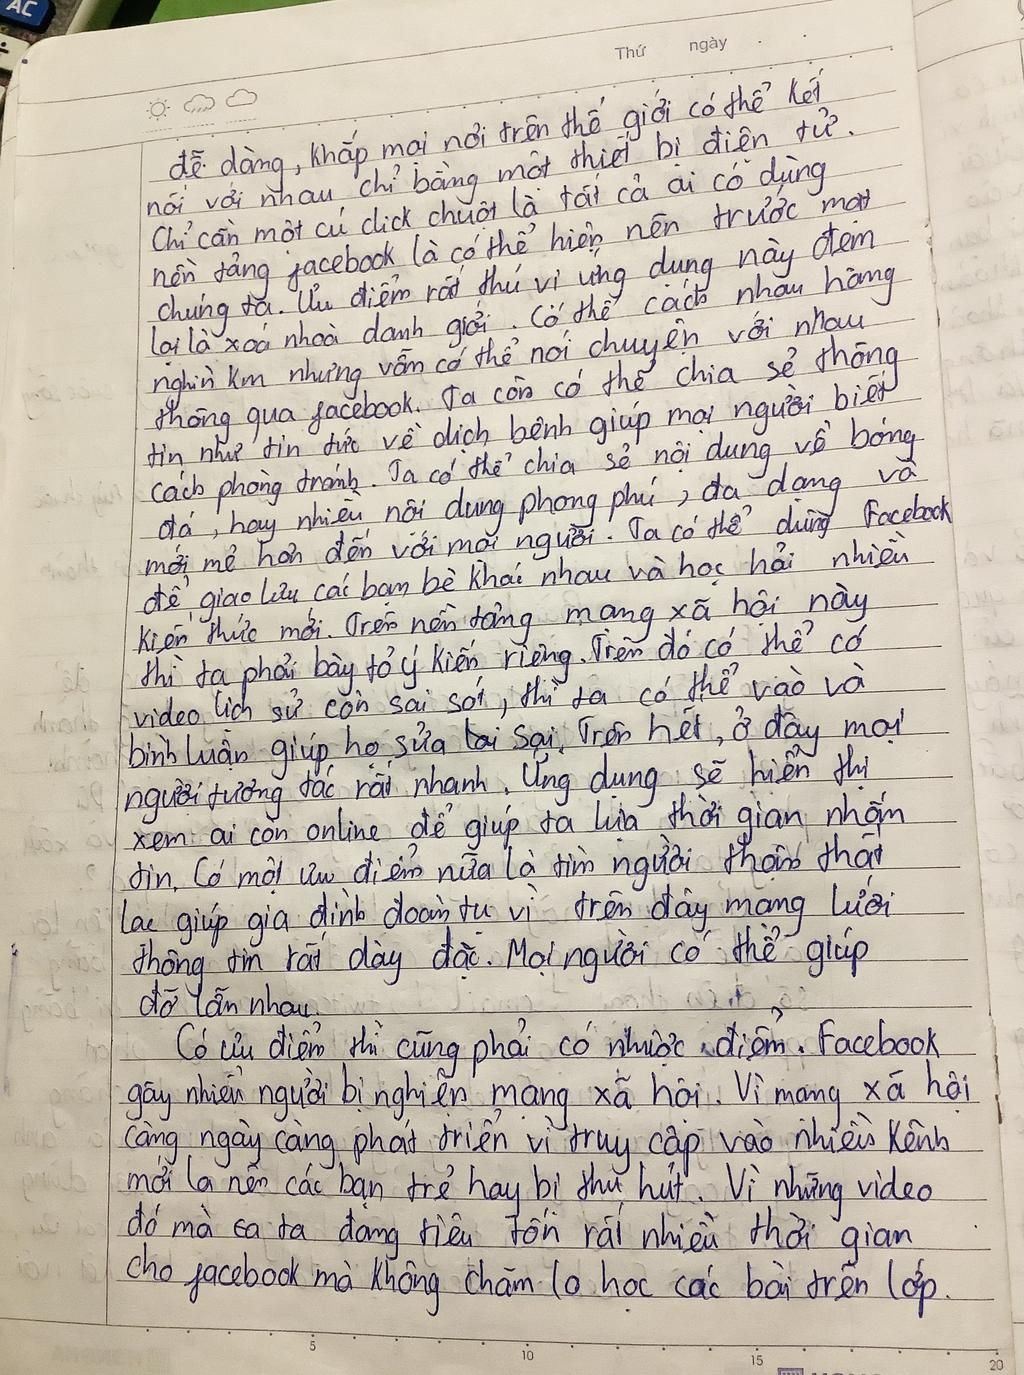 Thứ ngày
dễ dàng, khắp mọi nơi trên thế giới có thể kết
nối với nhau chỉ bằng một thiết bị điện tử.
Chỉ cần một cú click chuột là tất cả ai có dùng
nền tảng facebook là có thể hiện nên trước mắt
chúng ta. Ưu điểm rất thú vị ứng dụng này đem
lại là xoá nhoà danh giới. Có thể cách nhau hàng
nghìn km nhưng vẫn có thể nói chuyện với nhau
thông qua facebook. Ta còn có thể chia sẻ thông
tin như tin tức về dịch bệnh giúp mọi người biết
cách phòng tránh. Ta có thể chia sẻ nội dung về bóng
đá, hay nhiều nội dung phong phú, đa dạng và
mới mẻ hơn đến với mọi người. Ta có thể dùng Facebook
để giao lưu các bạn bè khác nhau và học hỏi nhiều
kiến thức mới. Trên nền tảng mạng xã hội này
thì ta phải bày tỏ ý kiến riêng. Trên đó có thể có
video lịch sử còn sai sót, thì ta có thể vào và
bình luận giúp họ sửa lại sai. Trên hết, ở đây mọi
người tương tác rất nhanh. Ứng dụng sẽ hiển thị
xem ai còn online để giúp ta lựa thời gian nhắn
tin. Có một ưu điểm nữa là tìm người thân thất
lạc giúp gia đình đoàn tụ vì trên đây mạng lưới
thông tin rất dày đặc. Mọi người có thể giúp
đỡ lẫn nhau.
Có ưu điểm thì cũng phải có nhược điểm. Facebook
gây nhiều người bị nghiện mạng xã hội. Vì mạng xã hội
càng ngày càng phát triển vì truy cập vào nhiều kênh
mới lạ nên các bạn trẻ hay bị thu hút. Vì những video
đó mà ta đang tiêu tốn rất nhiều thời gian
cho facebook mà không chăm lo học các bài trên lớp.
5 10 15 20